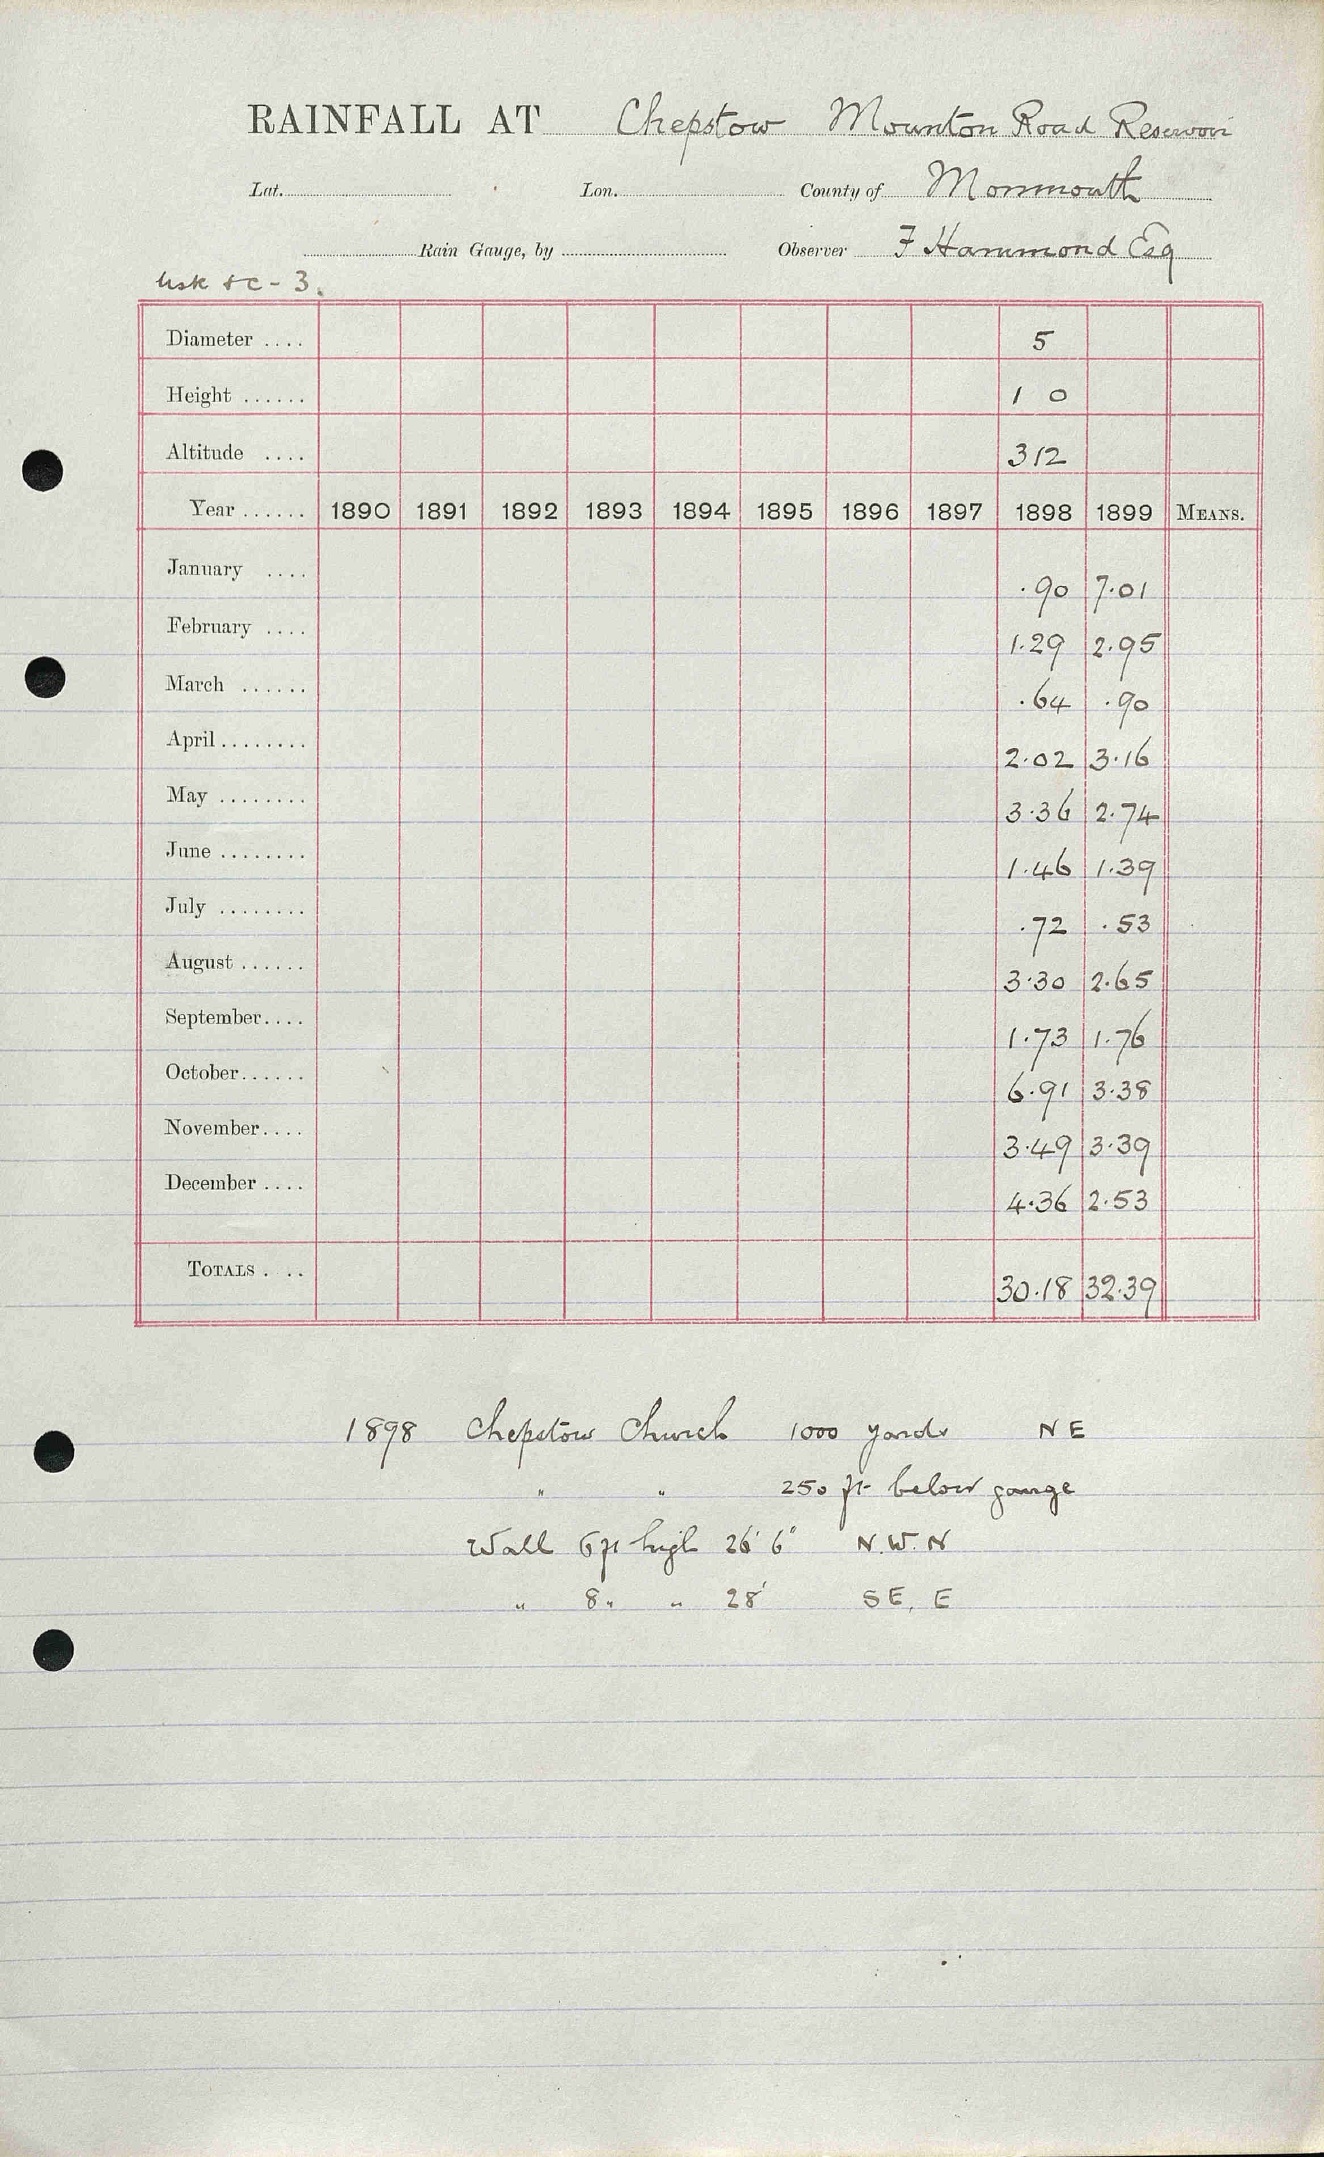 RAINFALL AT Chepstow Mounton Road Reservoir
Lat. Lon. County of Monmouth
Rain Gauge, by Observer F Hammond Esq
Usk &c - 3.
Diameter .... 5
Height ...... 1 0
Altitude .... 312
Year ...... 1890 1891 1892 1893 1894 1895 1896 1897 1898 1899 MEANS.
January .... .90 7.01
February .... 1.29 2.95
March ...... .64 .90
April ........ 2.02 3.16
May ........ 3.36 2.74
June ........ 1.46 1.39
July ........ .72 .53
August ...... 3.30 2.65
September.... 1.73 1.76
October...... 6.91 3.38
November.... 3.49 3.39
December .... 4.36 2.53
TOTALS . .. 30.18 32.39
1898 Chepstow Church 1000 yards NE
" " 250 ft below gauge
Wall 6 ft high 26' 6" N.W. N
" 8 " " 28' SE, E